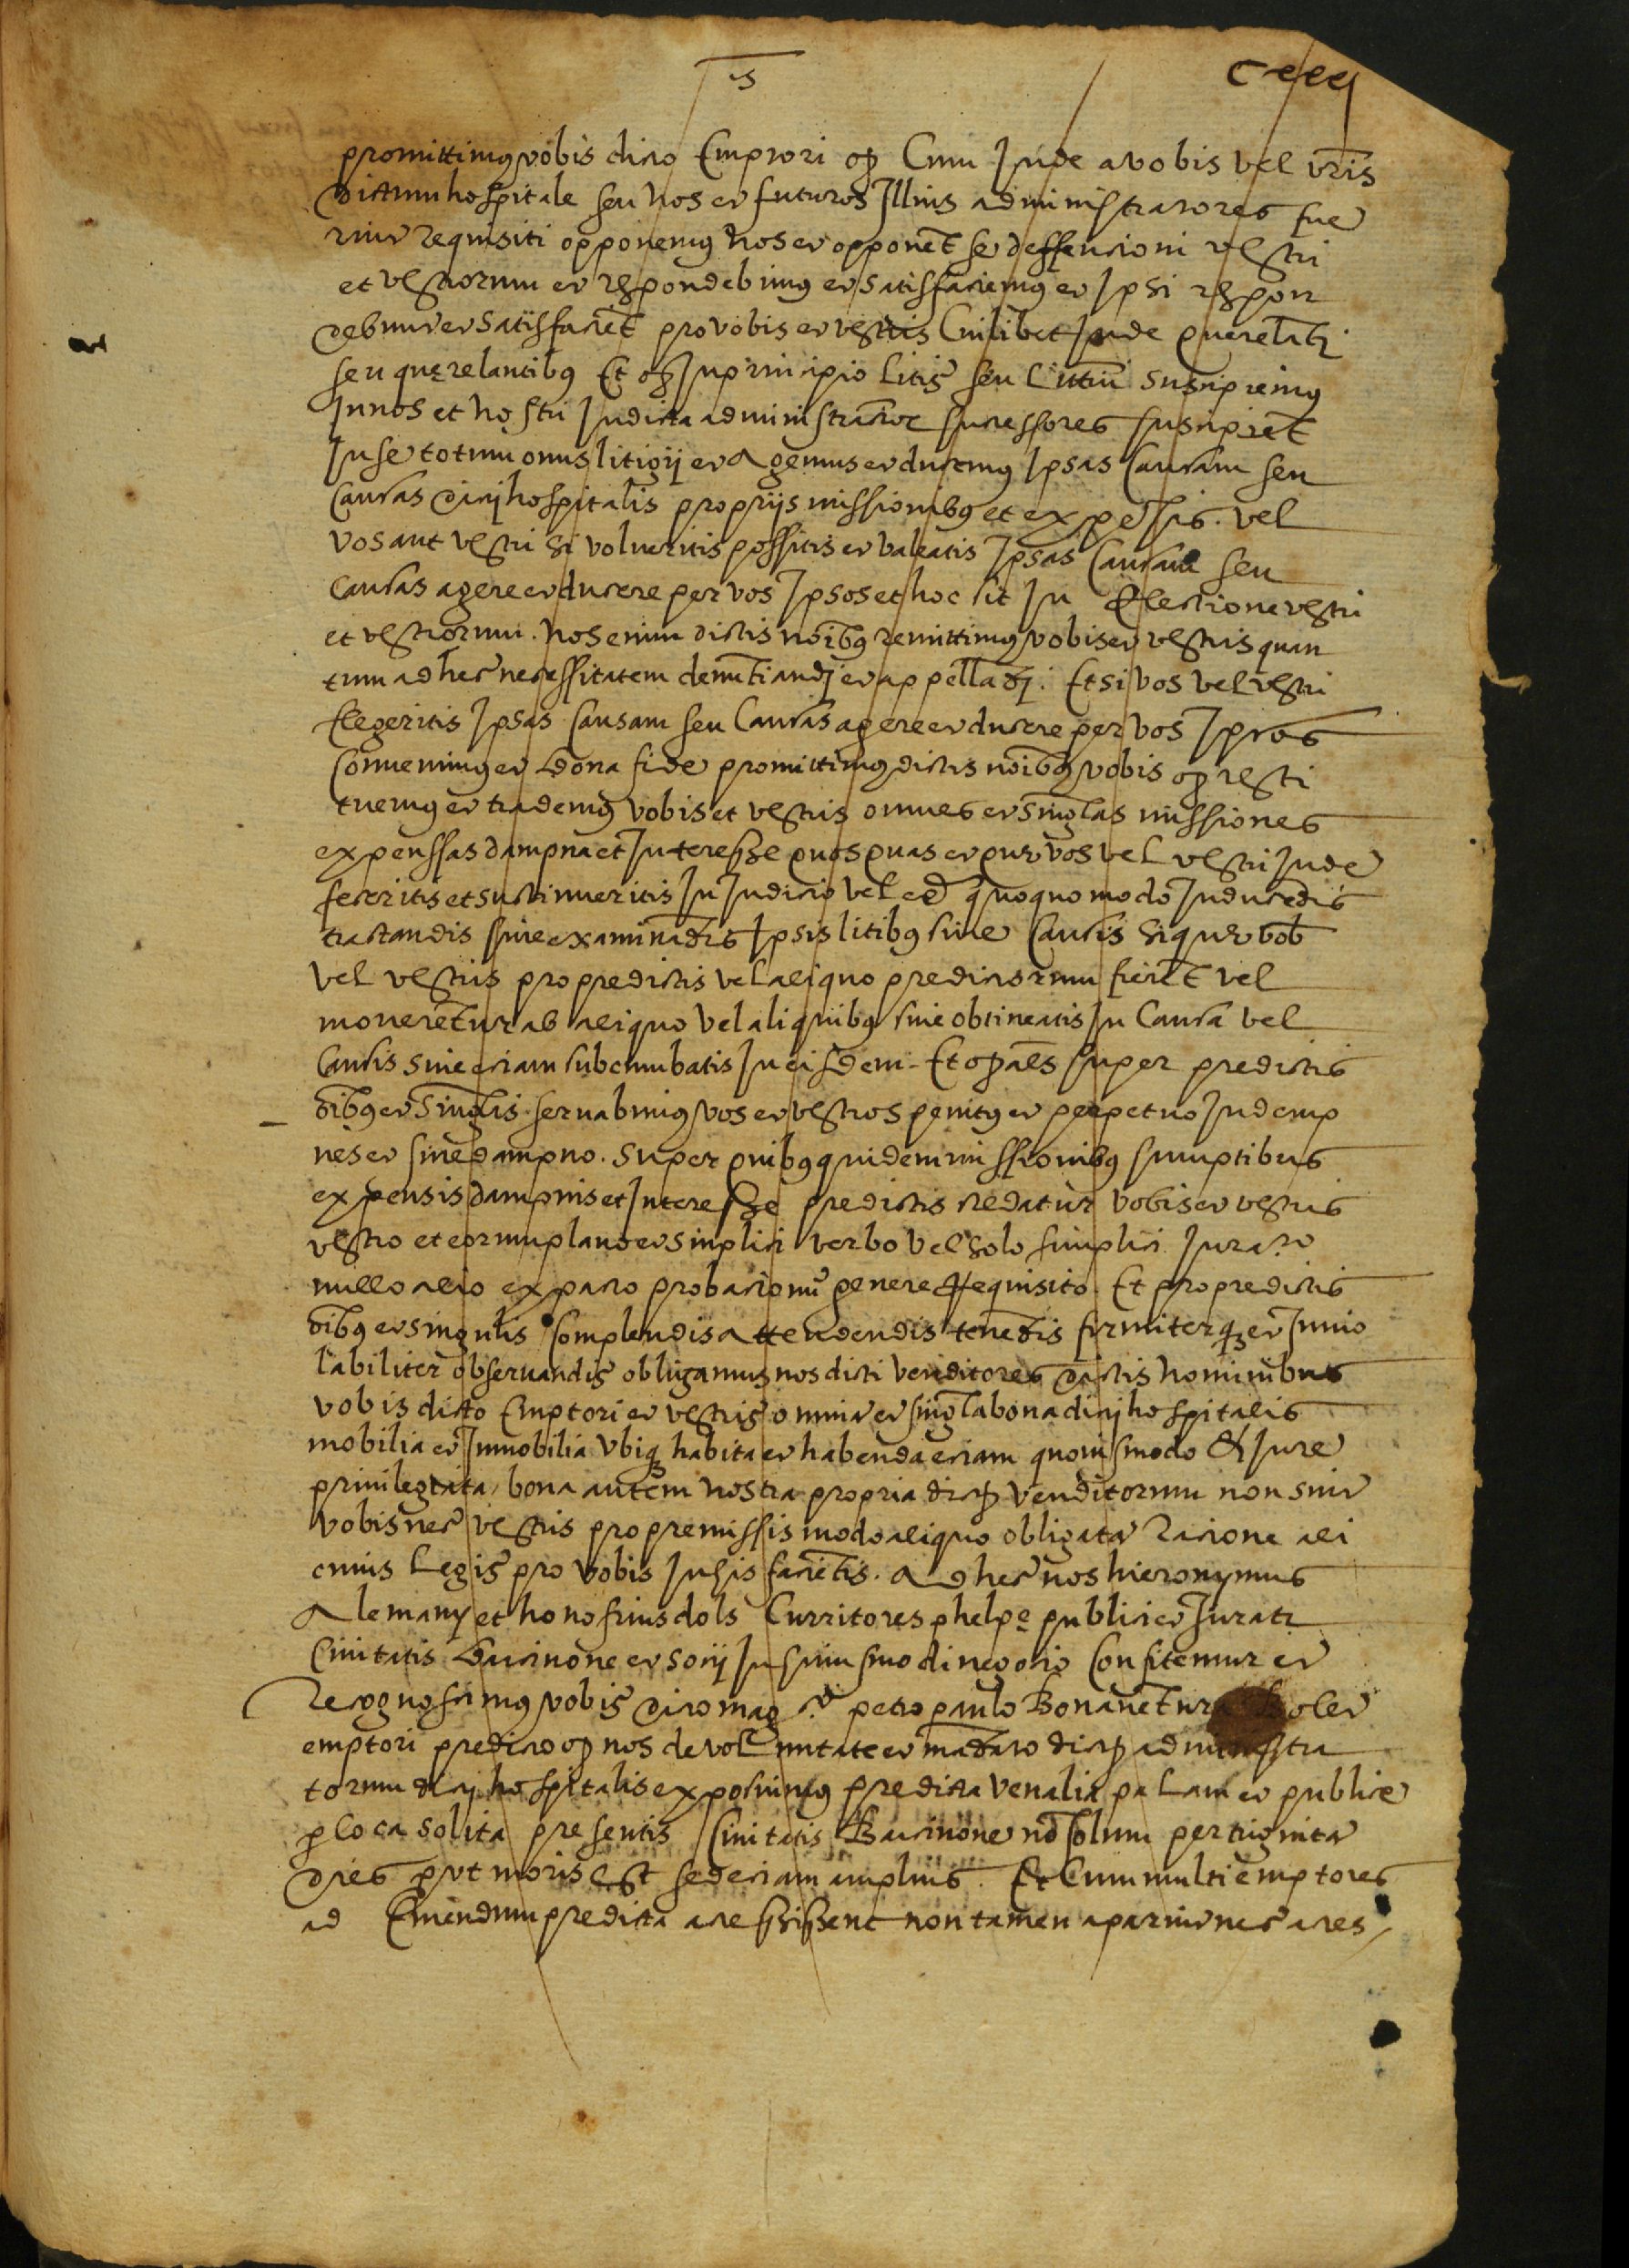 ccciij
promittimus vobis dicto Emptori qd Cum Inde a vobis vel vris
dictum hospitale seu nos et futuros Illius administratores fue
rint requisiti opponemus nos et opponet se deffencioni vestri
et vestrorum et respondebimus et satisfaciemus et Ipsi respon
debunt et satisfacient pro vobis et vestris Cuilibet Inde querelati
seu querelantibus Et qd In principio litis seu littium suscipiemus
In nos et nostri In dicta administracioe successores suscipient
In se totum onus litigij et Agemus et ducemus Ipsas Causam seu
Causas dicti hospitalis proprijs missionibus et expensis. vel
vos aut vestri si volueritis possitis et valeatis Ipsas Causam seu
Causas agere et ducere per vos Ipsos et hoc sit In Electione vestri
et vestrorum. Nos enim dictis noibus remittimus vobis et vestris quan
tum ad hec necessitatem denuntiandi et appellandi. Et si vos vel vestri
Elegeritis Ipsas Causam seu Causas agere et ducere per vos Ipsos
Convenimus et bona fide promittimus dictis noibus vobis qd resti
tuemus et trademus vobis et vestris omnes et singlas missiones
expenssas dampna et Interesse quos quas et que vos vel vestri Inde
feceritis et sustinueritis In Judicio vel ex quoquo modo In ducendis
tractandis sive examinandis Ipsis litibus sive Causis si que vob
vel vestris pro predictis vel aliquo predictorum fierent vel
moverentur ab aliquo vel aliquibus sive obtineatis In Causa vel
Causis sive eciam subcumbatis In eisdem. Et qd aes super predictis
oibus et Singulis servabimus vos et vestros penitus et perpetuo Indemp
nes et sine dampno. Super quibus quidem missionibus sumptibus
expensis dampnis et Interesse predictis credatur vobis et vestris
vestro et eorum plano et simplici verbo vel solo simplici Jurato
nullo alio ex pacto probacionu genere Requisito. Et pro predictis
oibus et singulis Complendis Attendendis tenendis firmiterq et Invio
labiliter observandis obligamus nos dicti venditores dictis nominibus
vobis dicto Emptori et vestris omnia et singla bona dicti hospitalis
mobilia et Inmobilia Ubiq habita et habenda eciam quovismodo A Jure
privilegiata, bona autem nostra propria dictor venditorum non sint
vobis nec vestris pro premissis modo aliquo obligata racione ali
cuius Legis pro vobis In his facientis. Ad hec nos hieronymus
Alemany et honofrius dols Curritores phelpe publici et Jurati
Civitatis Barcinone et socij In huiusmodi negocio Confitemur et
Recognoscimus vobis dicto magco petro paulo Bonaventura Bolet
emptori predicto qd nos de voluntate et mandato dictor administra
torum dicti hospitalis exposuimus predicta venalia palam et publice
p loca solita presentis Civitatis Barcinone no solum per triginta
dies put moris est sed eciam amplius. Et Cum multi emptores
ad Emendum predicta accessissent non tamen aparuit nec acces